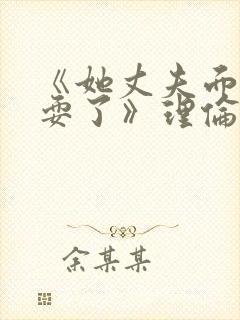 《她丈夫而
要了》理倫
余某某